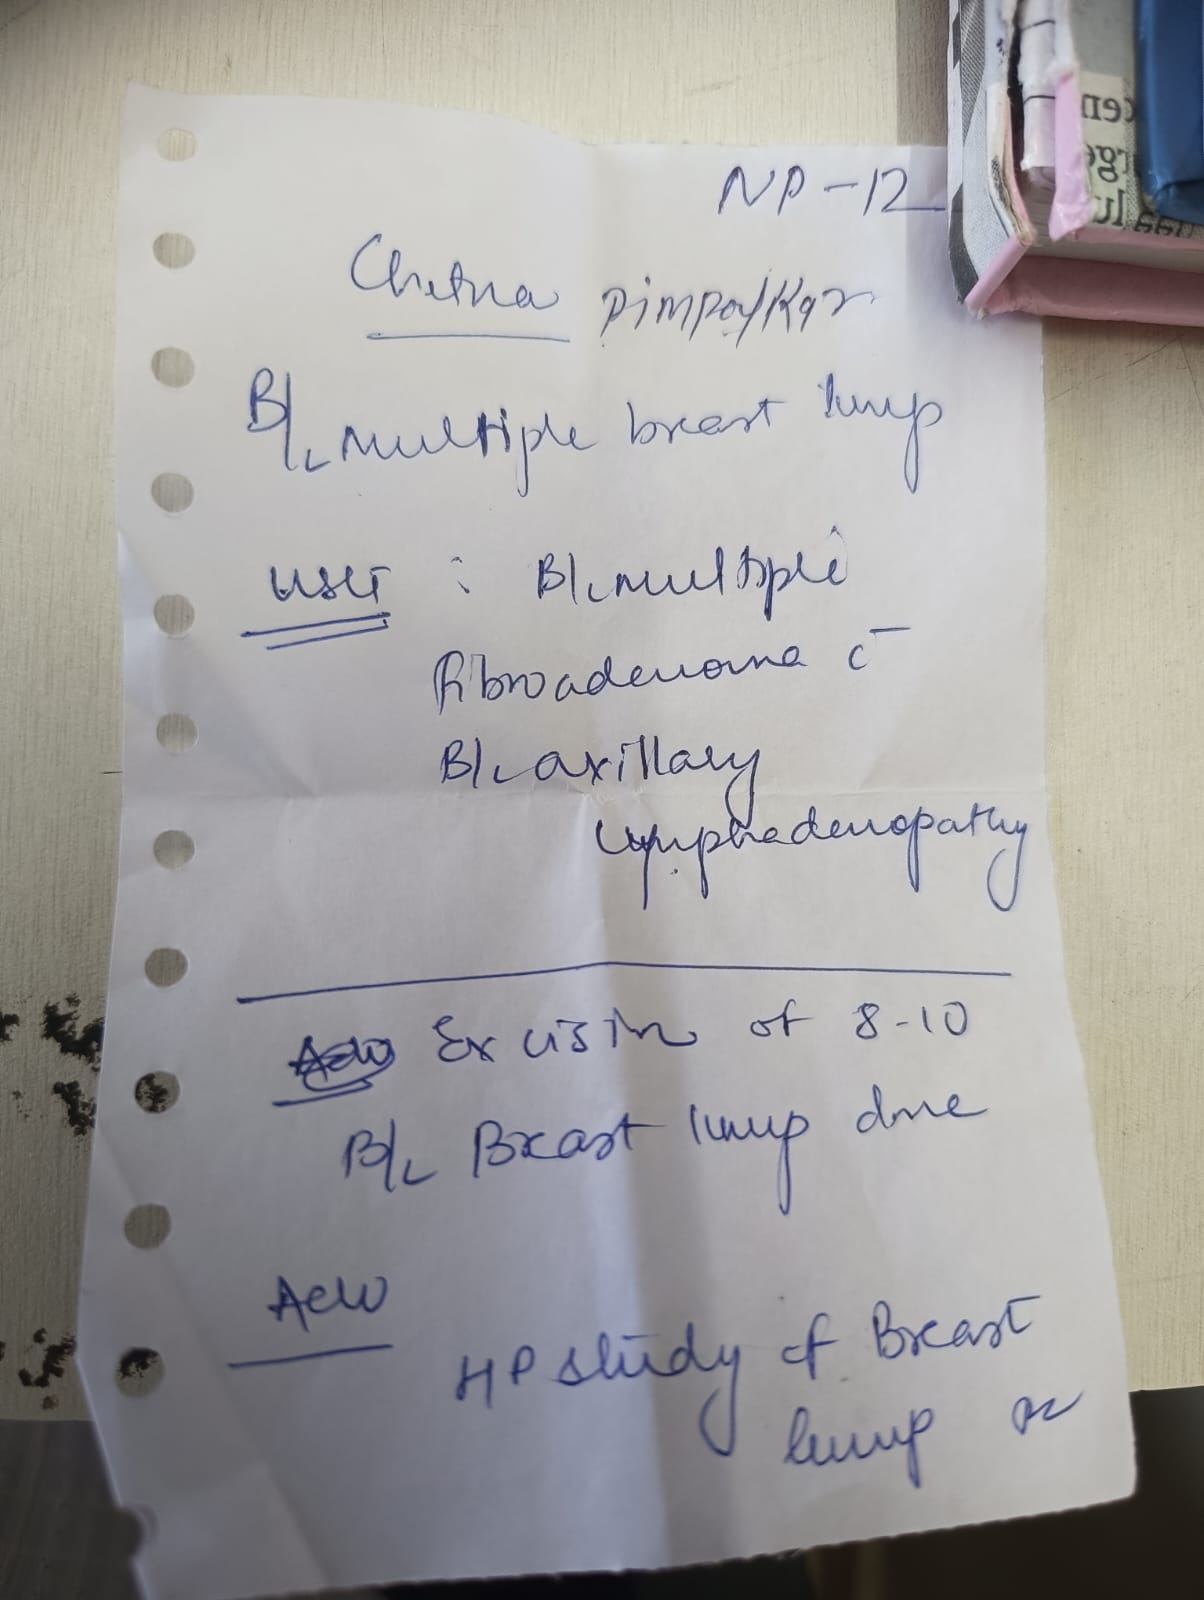 NP-12
Chetna Pimpalkar
B/L multiple breast lump
USG : B/L multiple
fibroadenoma c̄
B/L axillary
lymphadenopathy
Adv Excision of 8-10
B/L Breast lump done
Adv
HP study of Breast
lump